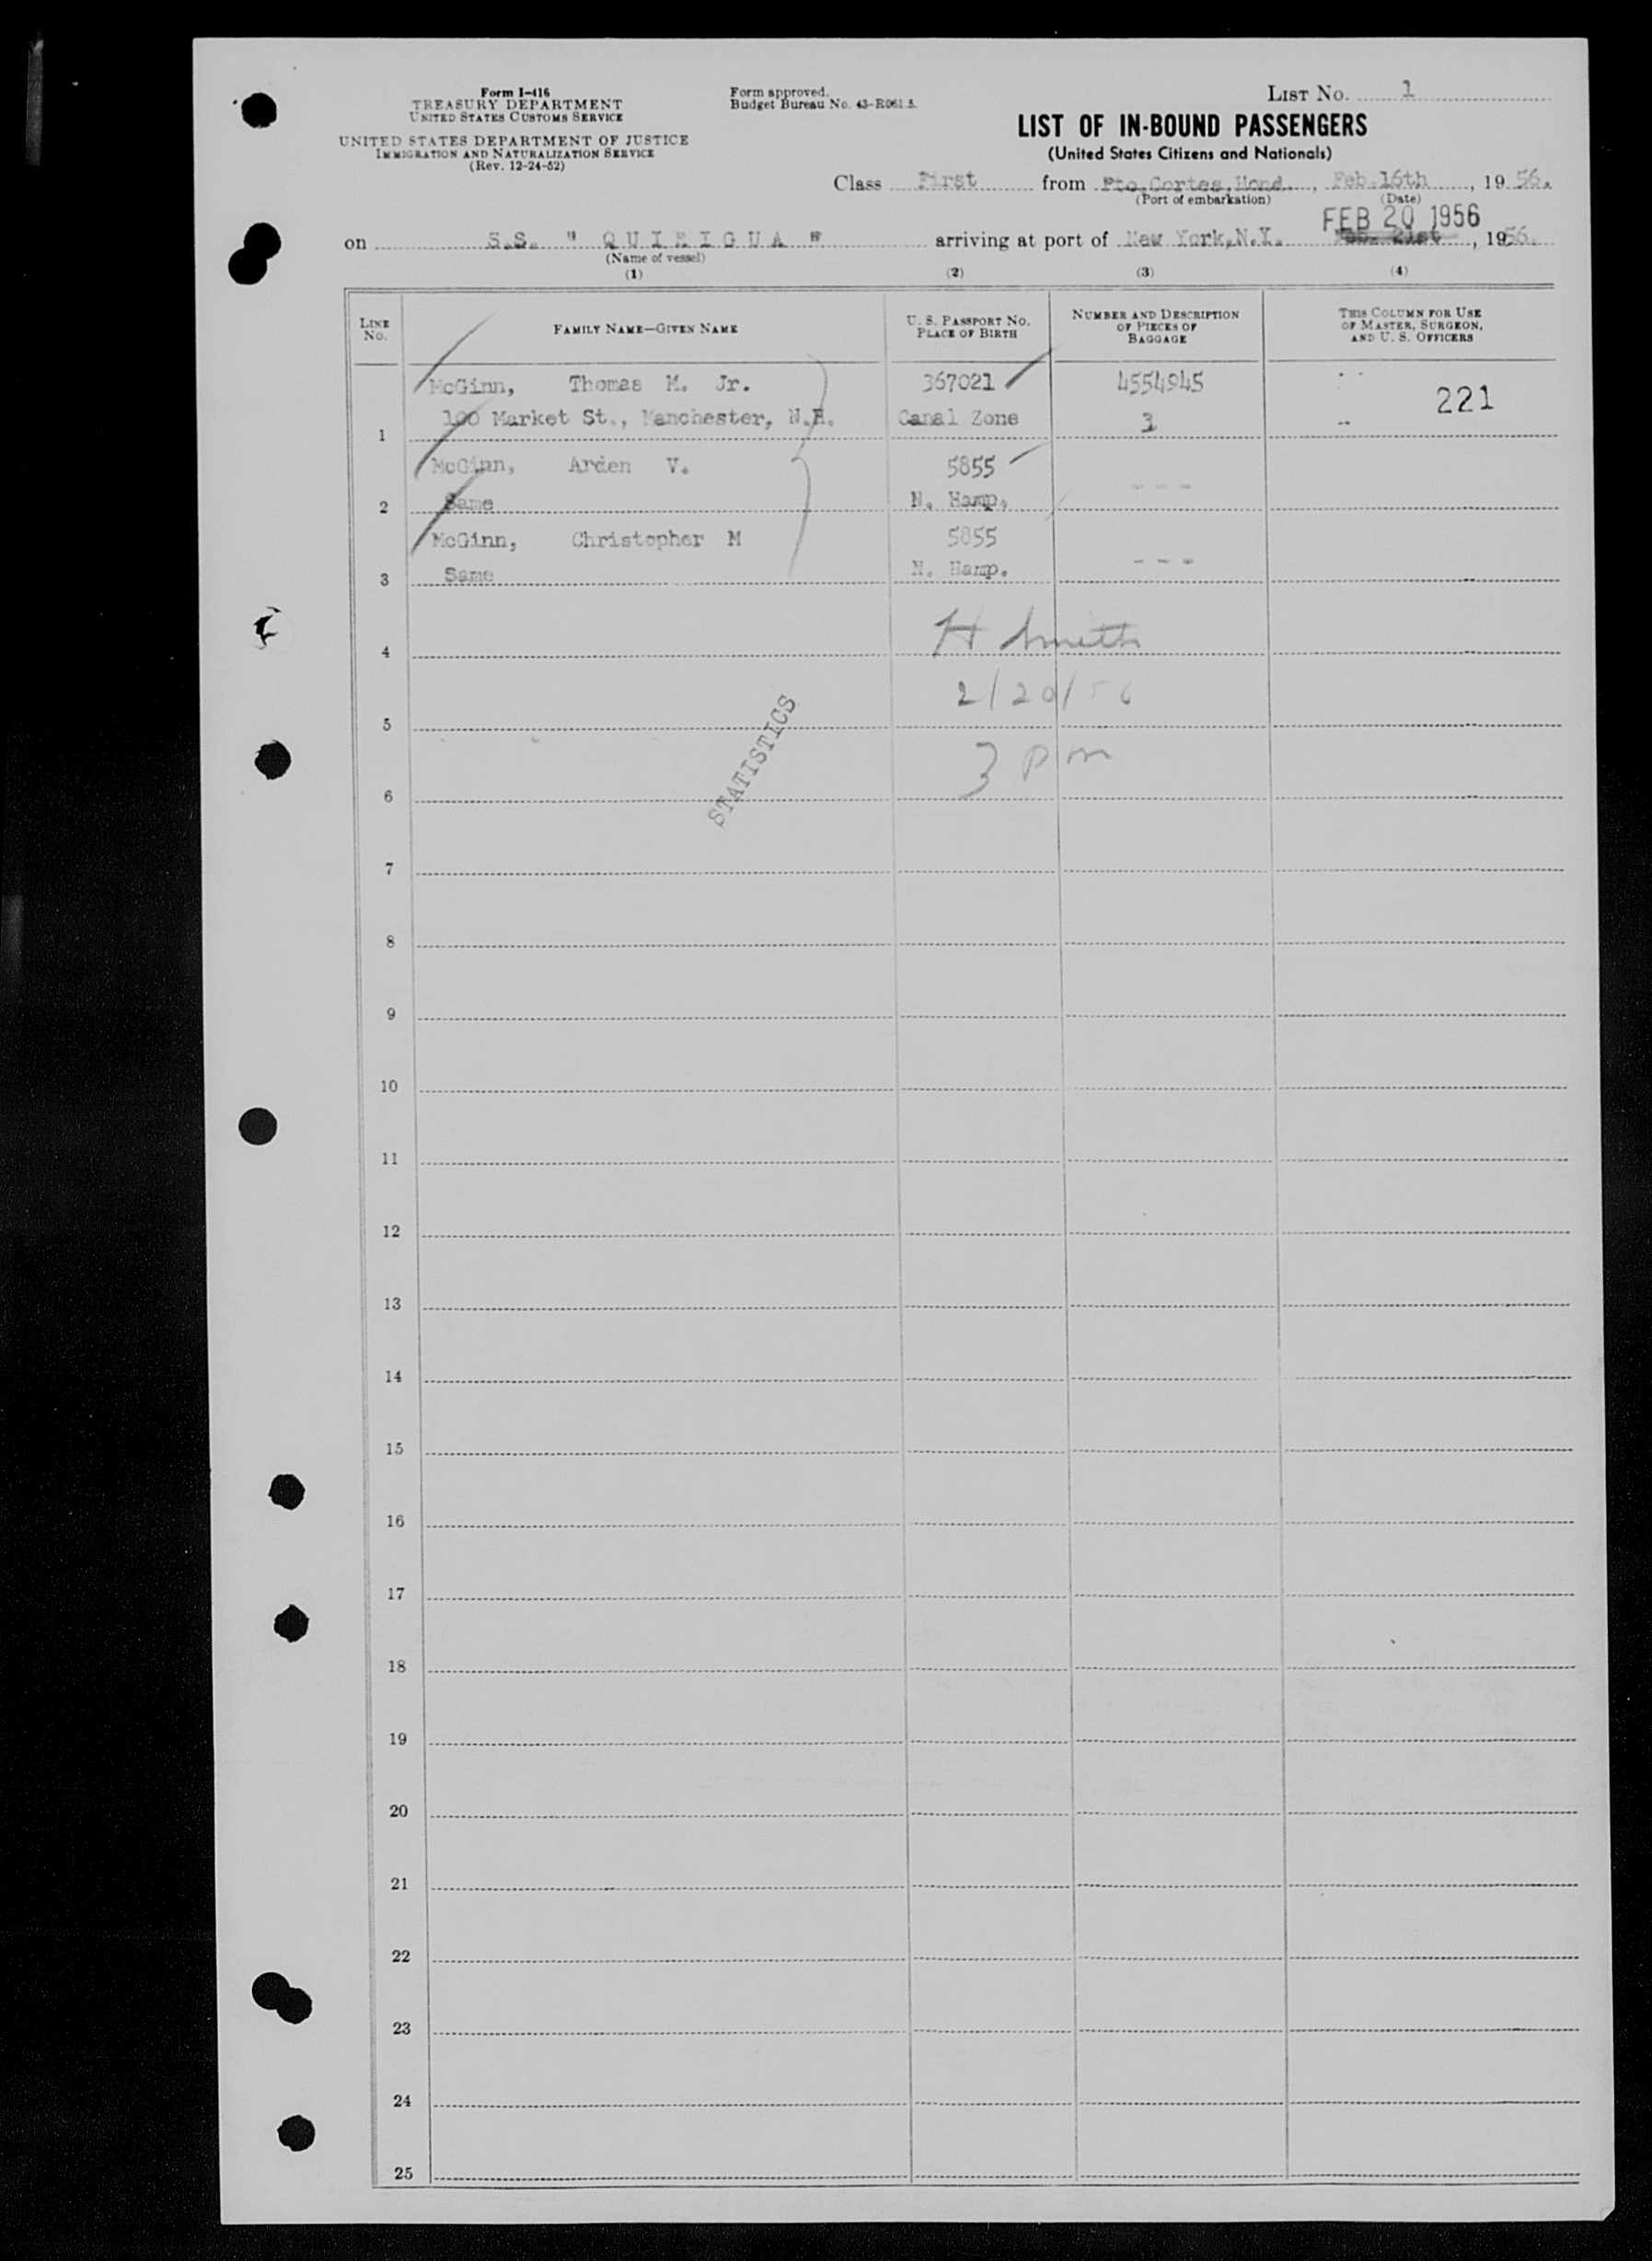 Form I-416
TREASURY DEPARTMENT
UNITED STATES CUSTOMS SERVICE
UNITED STATES DEPARTMENT OF JUSTICE
IMMIGRATION AND NATURALIZATION SERVICE
(Rev. 12-24-52)
Form approved.
Budget Bureau No. 43-R061.5.
LIST NO. 1
LIST OF IN-BOUND PASSENGERS
(United States Citizens and Nationals)
Class First from Pto.Cortes,Hond., Feb.16th, 19 56.
(Port of embarkation) (Date)
FEB 20 1956
on S.S. " QUIRIGUA " arriving at port of New York,N.Y. Feb. 21st, 1956.
(Name of vessel)
(1) (2) (3) (4)
LINE NO.
FAMILY NAME—GIVEN NAME
U. S. PASSPORT NO.
PLACE OF BIRTH
NUMBER AND DESCRIPTION
OF PIECES OF
BAGGAGE
THIS COLUMN FOR USE
OF MASTER, SURGEON,
AND U. S. OFFICERS
McGinn, Thomas M. Jr. 367021 4554945 221
1 100 Market St., Manchester, N.H. Canal Zone 3
McGinn, Arden V. 5855
2 Same N. Hamp. - - -
McGinn, Christopher M 5855
3 Same N. Hamp. - - -
4 H Smith
2/20/56
5
STATISTICS
3 pm
6
7
8
9
10
11
12
13
14
15
16
17
18
19
20
21
22
23
24
25